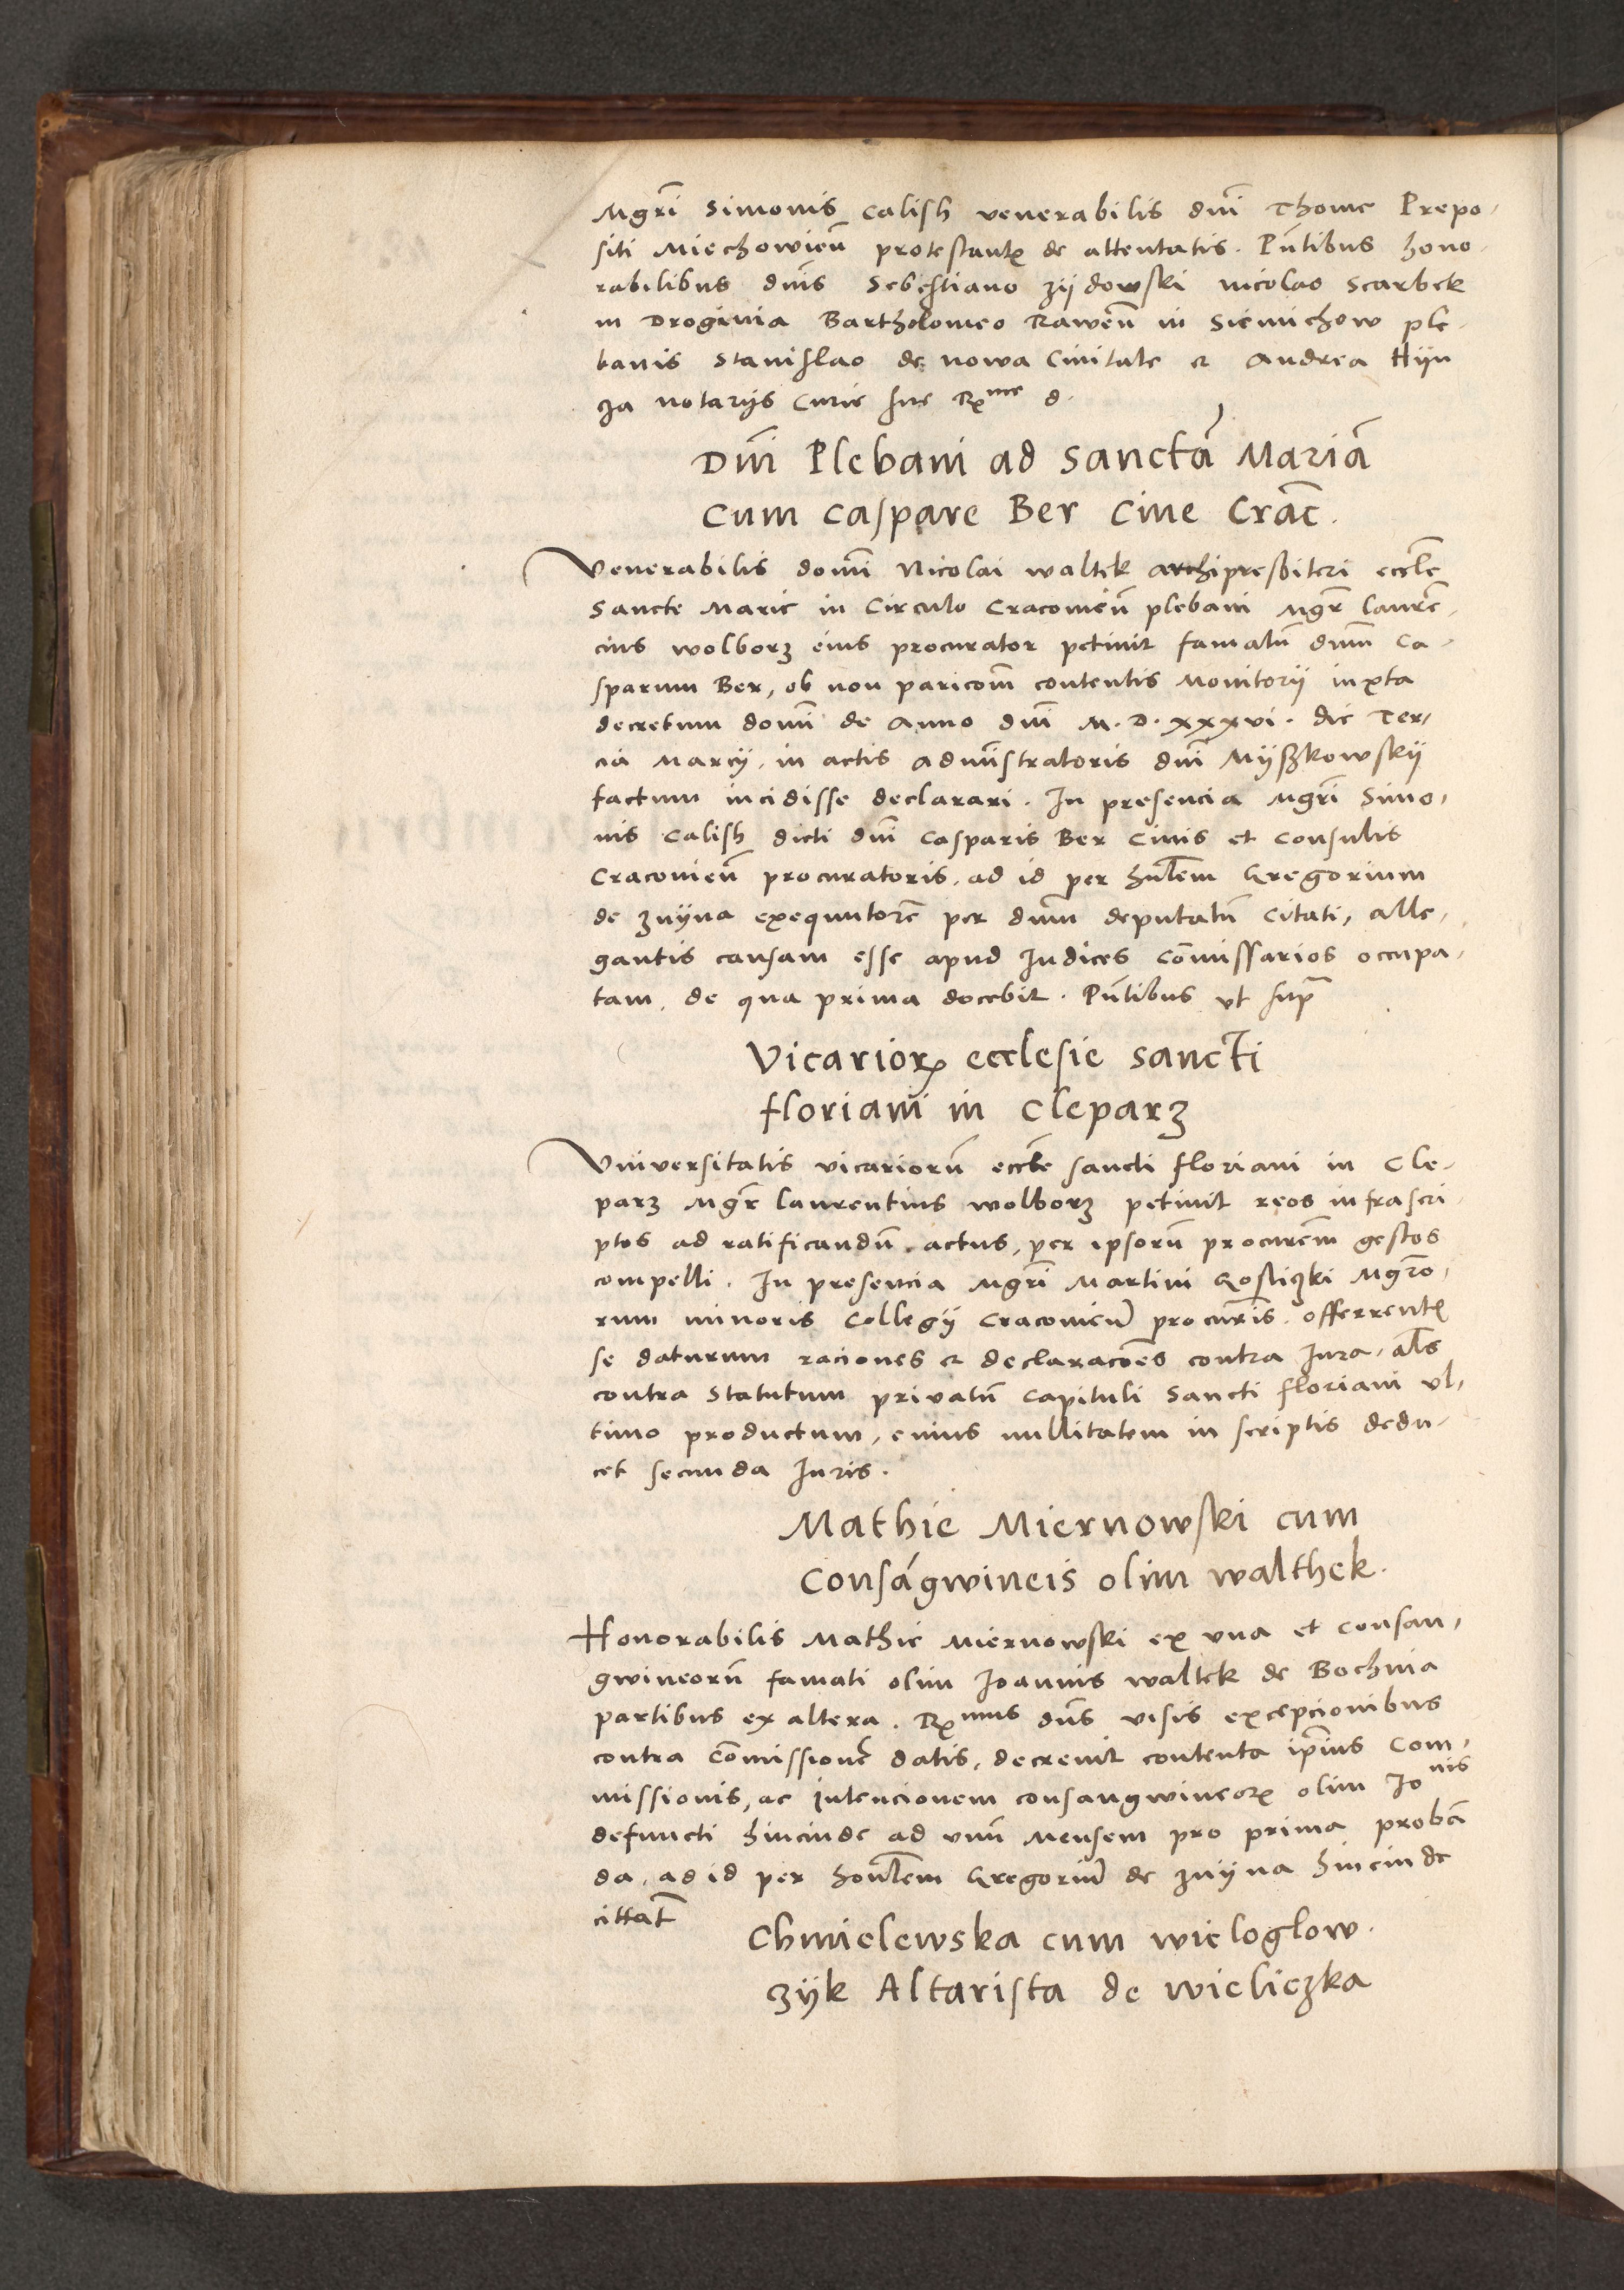 Mgrī Simonis Calish venerabilis dnī Thome Prepo,
siti Miechowieñ protestantꝭ de attentatis. Pn̄tibus hono,
rabilibus dnīs Sebestiano Zijdowski Nicolao Scarbek
in Droginia Bartholomeo Raweñ in Siemichow ple,
banis Stanislao de Nowa Civitate et Andrea Hijn
za notarijs Curie sue Rme d.
Dnī Plebani ad Sanctā Mariā
cum Caspare Ber Cive Crac̄.
Venerabilis domī Nicolai Waltek archipresbiteri eccl̄e
Sancte Marie in Circulo Cracovieñ plebani Mgr̄ Laurē,
cius Wolborz eius procurator petivit famatū dnum Ca,
sparum Ber, ob non paricom̄ contentis Monitorij iuxta
decretum domī de Anno dnī M.D.xxxvi. die Ter,
cia Marcij, in actis administratoris dnī Mijszkowskij
factum incidisse declarari. In presencia Mgrī Simo,
nis Calish dicti dnī Casparis Ber Civis et Consulis
Cracovieñ procuratoris, ad id per hn̄lem Gregorium
de Znijna exequutorē per dnum deputatū citati, alle,
gantis causam esse apud Iudices Cōmissarios occupa,
tam, de qua prima docebit. Pn̄tibus ut supra
Vicariorꝝ ecclesie sancti
floriani in Cleparz
Universitatis vicariorū eccl̄e sancti floriani in Cle,
parz Mgr̄ Laurentius Wolborz petivit reos infrascri,
ptos ad ratificandū actus, per ipsorū procurem̄ gestos
compelli. In presencia Mgrī Martini Gosliczki Mgr̄o,
rum minoris Collegij Cracovieñ procur̄is, offerrentꝭ
se daturum raciones et declaracōes contra Iura, al̄s
contra Statutum privatū Capituli Sancti floriani ul,
timo productum, cuius nullitatem in scriptis dedu,
cet secunda Iuris.
Mathie Miernowski cum
Consāgwineis olim Walthek.
Honorabilis Mathie Miernowski ex una et Consan,
gwineorū famati olim Ioannis Waltek de Bochnia
partibus ex altera. Rmus dn̄s visis excepcionibus
contra Cōmissionē datis, decrevit contenta ipīus Com,
missionis, ac Intencionem consangwineorꝝ olim Ionis
defuncti hincinde ad unū Mensem pro prima probā
da, ad id per hon̄lem Gregoriū de Znijna hincinde
cittat̄
Chmielewska cum Wieloglow,
czijk Altarista de Wieliczka